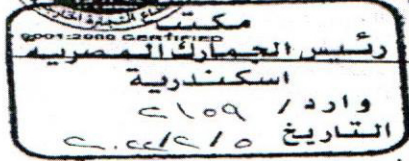 مكتب
9001:2000 CERTIFIED
رئيس الجمارك المصرية
اسكندرية
وارد / ٢١٥٩
التاريخ